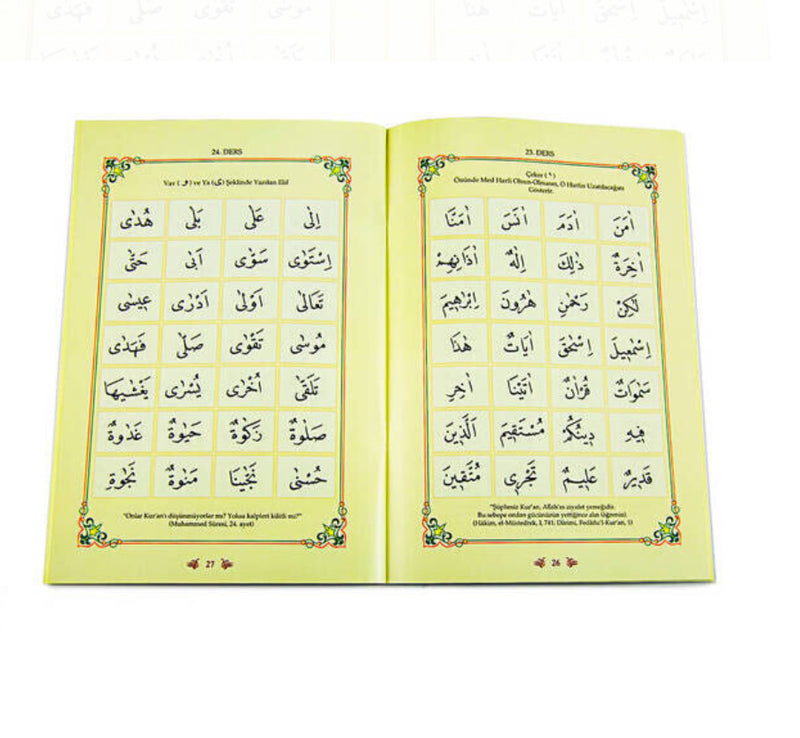 23. DERS
Çeker ( ٰ )
Önünde Med Harfi Olsun-Olmasın, O Harfin Uzatılacağını
Gösterir.
اٰمَنَ اٰدَمَ اٰنَسَ اٰمَنَّا
اٰخِرَةٌ ذٰلِكَ اِلٰهٌ اٰذَانِهِمْ
لٰكِنْ رَحْمٰنِ هٰرُونَ اِبْرٰهِيمَ
اِسْمٰعِيلَ اِسْحٰقَ اٰيَاتٌ هٰذَا
سَمٰوَاتٌ قُرْاٰنٌ اٰتَيْنَا اٰخِرِ
فِيهِ دِينُكُمْ مُسْتَقِيمَ اَلَّذِينَ
قَدِيرٌ عَلِيمٌ تَجْرِى مُتَّقِينَ
"Şüphesiz Kur'an, Allah'ın ziyafet yemeğidir.
Bu sebepe ondan gücünüzün yettiğince alın (öğrenin).
(Hâkim, el-Müstedrek, I, 741; Dârimi, Fedâilu'l-Kur'an, 1)
26
24. DERS
Vav ( و ) ve Ya (ى) Şeklinde Yazılan Elif
اِلٰى عَلٰى بَلٰى هُدٰى
اِسْتَوٰى سَوّٰى اَبٰى حَتّٰى
تَعَالٰى اَوْلٰى اَدْرٰى عِيسٰى
مُوسٰى تَقْوٰى صَلّٰى فَهَدٰى
تَلَقّٰى اُخْرٰى يُسْرٰى يَغْشٰيهَا
صَلٰوةٌ زَكٰوةٌ حَيٰوةٌ غَدٰوةٌ
حُسْنٰى نَجّٰينَا مَنٰوةٌ نَجٰوةٌ
"Onlar Kur'an'ı düşünmüyorlar mı? Yoksa kalpleri kilitli mi?"
(Muhammed Sûresi, 24. ayet)
27